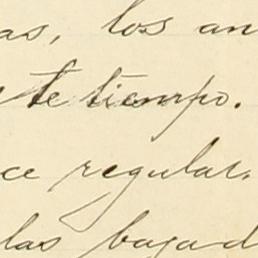 as, los an
te tiempo.
ce regular.
las bajad